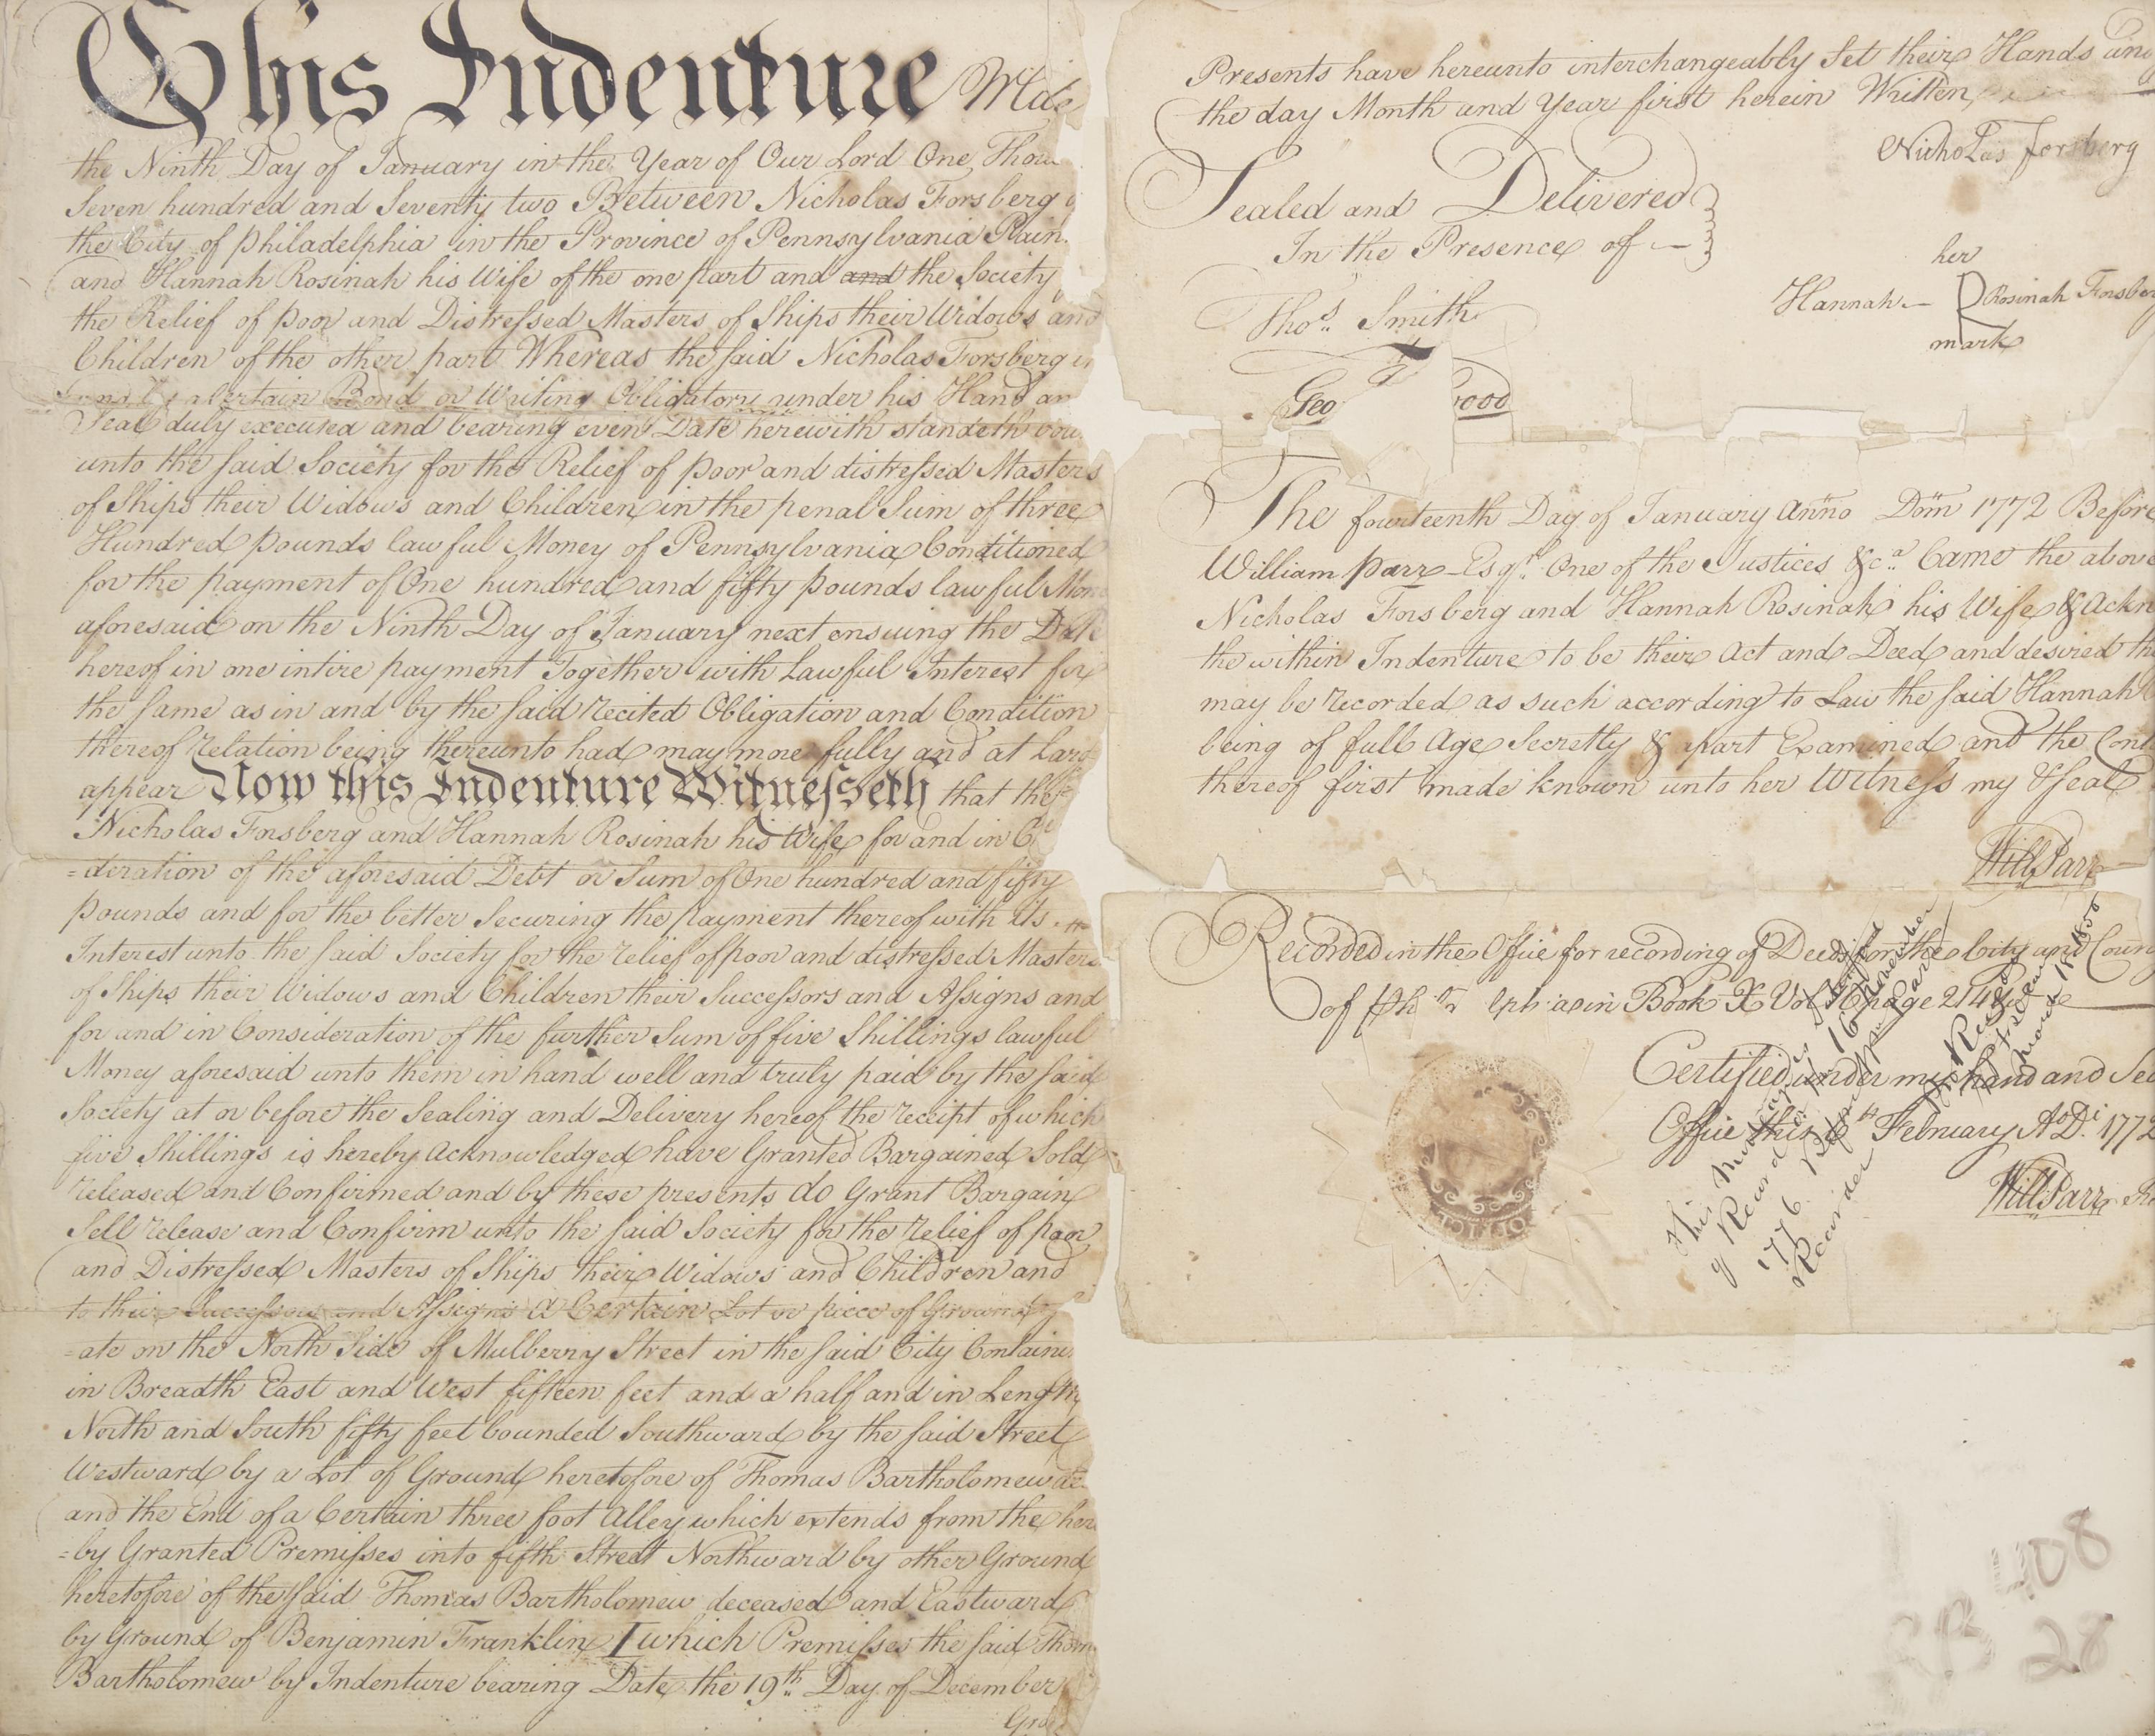 This Indenture Made
the Ninth Day of January in the Year of Our Lord One Thou
Seven hundred and Seventy two Between Nicholas Forsberg
the City of Philadelphia in the Province of Pennsylvania
and Hannah Rosinah his Wife of the one part and and the Society
the Relief of poor and Distressed Masters of Ships their Widows and
Children of the other part Whereas the said Nicholas Forsberg in
a Certain Bond or Writing Obligatory under his Hand an
Seal duly executed and bearing even Date herewith standeth bou
unto the said Society for the Relief of poor and distressed Masters
of Ships their Widows and Children in the penal Sum of three
Hundred pounds lawful Money of Pennsylvania Conditioned
for the payment of One hundred and fifty pounds lawful Mon
aforesaid on the Ninth Day of January next ensuing the Date
hereof in one intire payment Together with Lawful Interest for
the same as in and by the said recited Obligation and Condition
thereof relation being thereunto had may more fully and at Large
appear Now this Indenture Witnesseth that the
Nicholas Forsberg and Hannah Rosinah his Wife for and in
=deration of the aforesaid Debt or Sum of One hundred and fifty
pounds and for the better Securing the payment thereof with its
Interest unto the said Society for the relief of poor and distressed Masters
of Ships their Widows and Children their Successors and Assigns and
for and in Consideration of the further Sum of five Shillings lawful
Money aforesaid unto them in hand well and truly paid by the said
Society at or before the Sealing and Delivery hereof the receipt of which
five Shillings is hereby Acknowledged have Granted Bargained Sold
released and Confirmed and by these presents do Grant Bargain
Sell release and Confirm unto the said Society for the relief of poor
and Distressed Masters of Ships their Widows and Children and
to their Successors and Assigns a Certain Lot or piece of Ground
=ate on the North Side of Mulberry Street in the said City Contain
in Breadth East and West fifteen feet and a half and in Length
North and South fifty feet bounded Southward by the said Street
Westward by a Lot of Ground heretofore of Thomas Bartholomew de
and the End of a Certain three foot Alley which extends from the here
=by Granted Premisses into fifth Street Northward by other Ground
heretofore of the said Thomas Bartholomew deceased and Eastward
by Ground of Benjamin Franklin which Premisses the said Thom
Bartholomew by Indenture bearing Date the 19th Day of December
Presents have hereunto interchangeably Set their Hands and
the day Month and Year first herein Written
Nicholas Forsberg
Sealed and Delivered
In the Presence of
her
Hannah Rosinah Forsber
mark
Thos. Smith
Geo ood
The fourteenth Day of January Anno Dom 1772 Before
William Parr Esqr. One of the Justices &ca. Came the above
Nicholas Forsberg and Hannah Rosinah his Wife & Ackn
the within Indenture to be their Act and Deed and desired th
may be recorded as such according to Law the said Hannah
being of full Age Secretly & apart Examined and the Cont
thereof first made known unto her Witness my & Seal
Will Parr
Recorded in the Office for recording of Deeds for the City and Coun
of Ph lphia in Book X Vol page 214
Certified under my hand and Sea
Office this February Ao. Di. 1772
Will Parr
This Mortgage is satisfied
of Record 16 November
1776 Parr
Recorder
OFFICE
408
RB 28